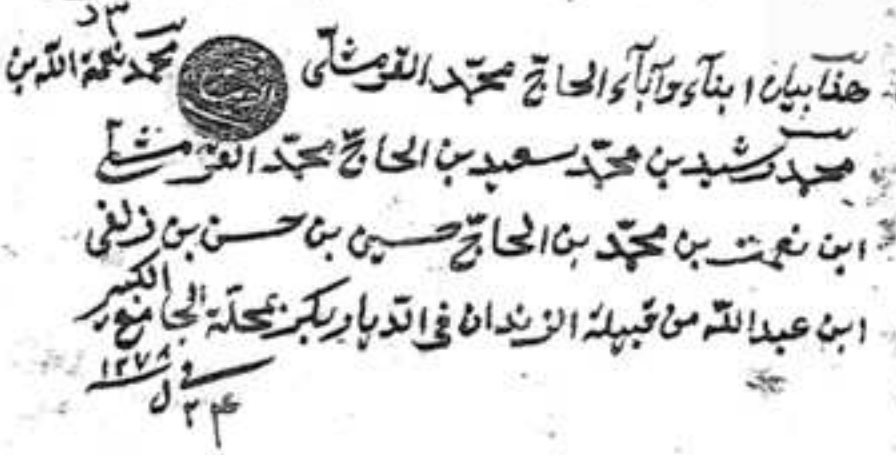 هذا بيان ابنآء وآبآء الحاج محمّد القومشلى محمد نعمة الله بن
محمد رشيد بن محمّد سعيد بن الحاج محمّد القومشلى
ابن نعمت بن محمّد بن الحاجّ حسين بن حسن بن زلفى
ابن عبدالله من قبيلة الزندان فى الديار بكر بمحلّة الجامع الكبير
فى ١٢٧٨